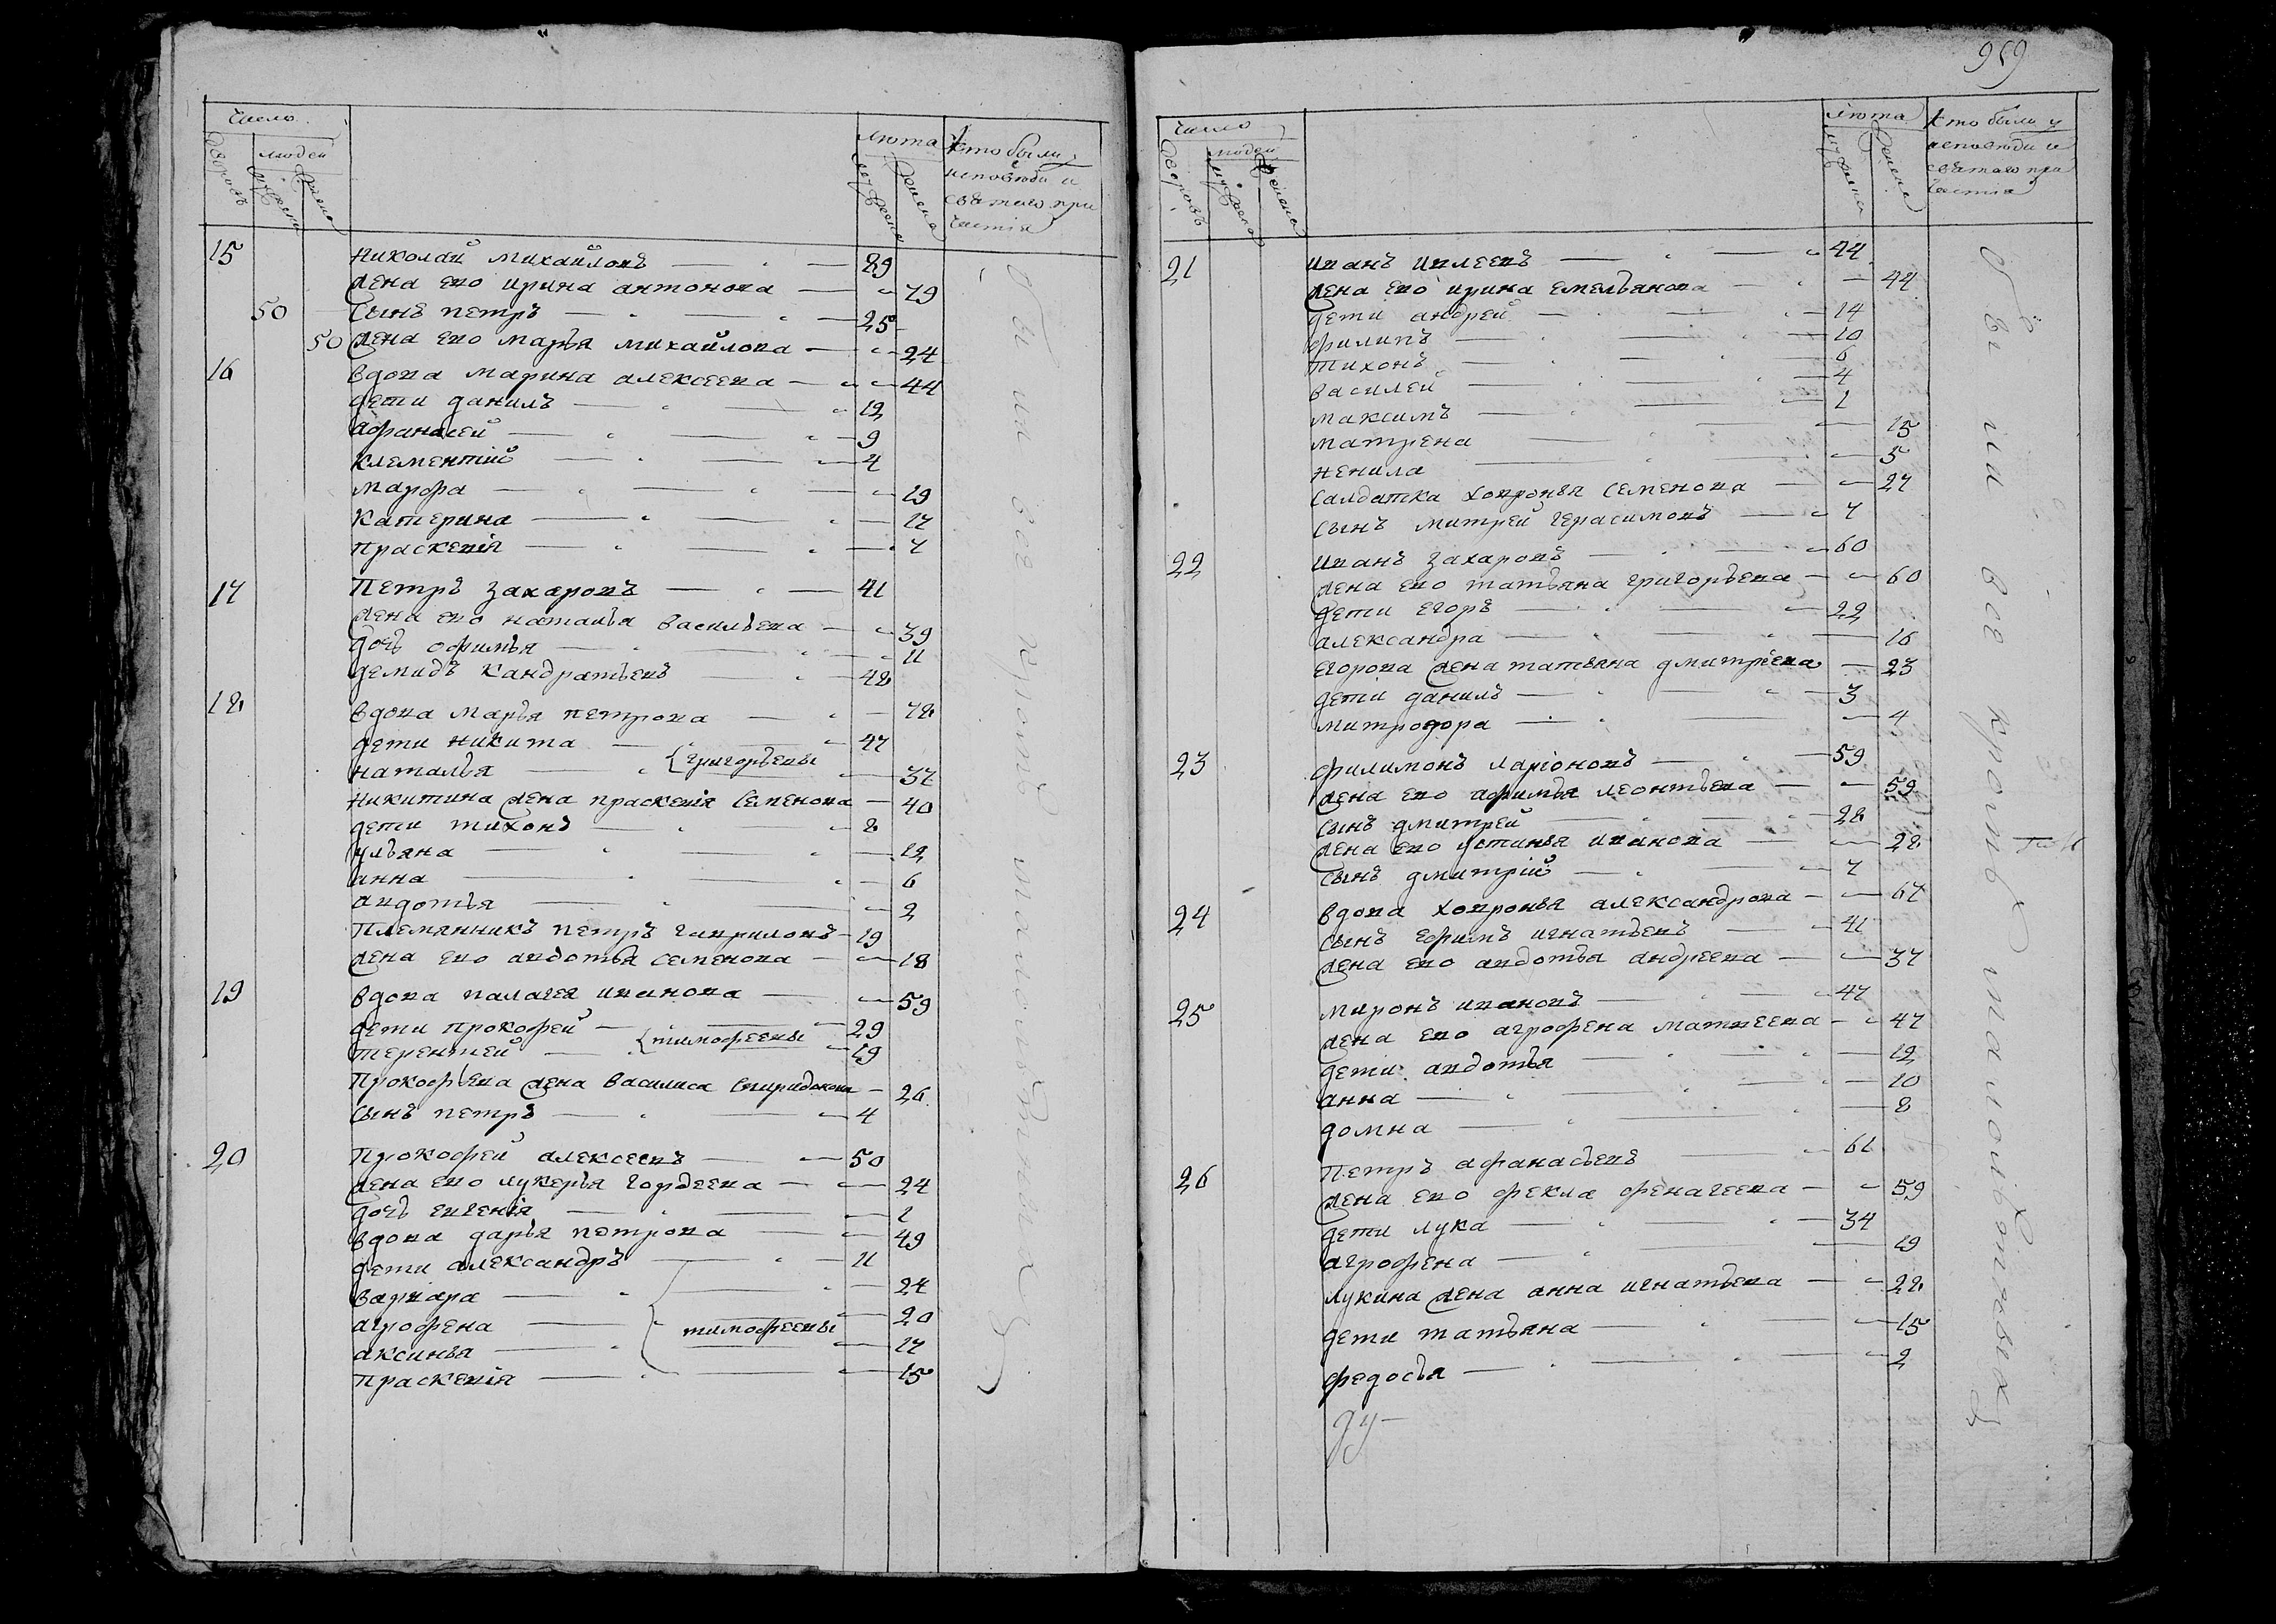 Число
дворовъ
людей
мужеска
женска
лѣта
мужеска
женска
Кто были у
исповѣди и
святаго при
частія
15 Николай Михайловъ 89
жена ево Ирина Антонова 79
50 Сынъ Петръ 25
50 жена ево Марья Михайлова 24
16 Вдова Марина Алексеева 44
дети Данилъ 12
Афанасей 9
Клементий 4
Марфа 19
Катерина 17
Прасковiя 7
17 Петръ Захаровъ 41
жена ево Наталья Васильева 39
дочь Офимья 11
Демидъ Кандратьевъ 48
18 Вдова Марья Петрова 78
дети Никита 47
Наталья 37
Григорьевы
Никитина жена Прасковiя Семенова 40
дети Тихонъ 8
Ульяна 12
Анна 6
Авдотья 2
Племянникъ Петръ Гавриловъ 19
жена ево Авдотья Семенова 18
19 Вдова Палагея Иванова 59
дети Прокофей 29
Терентей 19
Тимофеевы
Прокофьева жена Василиса Спиридонова 26
Сынъ Петръ 4
20 Прокофей Алексеевъ 50
жена ево Лукерья Гордеева 24
дочь Евгенiя 1
Вдова Дарья Петрова 49
дети Александръ 11
Варвара 24
Агрофена 20
Аксинья 17
Прасковiя 15
Тимофеевы
959
Число
дворовъ
людей
мужеска
женска
лѣта
мужеска
женска
Кто были у
исповѣди и
святаго при
частія
21 Иванъ Ивлеевъ 44
жена ево Ирина Емельянова 44
дети Андрей 14
Филипъ 10
Тихонъ 6
Василей 4
Максимъ 1
Матрена 15
Ненила 5
Салдатка Ховронья Семенова 27
Сынъ Митрей Герасимовъ 7
22 Иванъ Захаровъ 60
жена ево Татьяна Григорьева 60
дети Егоръ 22
Александра 16
Егорова жена Татьяна Дмитрева 23
дети Данилъ 3
Митродора 4
23 Филимонъ Ларiоновъ 59
жена ево Афимья Леонтьева 59
Сынъ Дмитрей 28
жена ево Устинья Иванова 28
Сынъ Дмитрiй 7
24 Вдова Ховронья Александрова 67
Сынъ Ефимъ Игнатьевъ 41
жена ево Авдотья Андреева 37
25 Миронъ Ивановъ 47
жена ево Агрофена Матвеева 47
дети Авдотья 12
Анна 10
Домна 8
26 Петръ Афанасьевъ 61
жена ево Фекла Фенагеева 59
дети Лука 34
Агрофена 19
Лукина жена Анна Игнатьева 28
дети Татьяна 15
Федосья 2